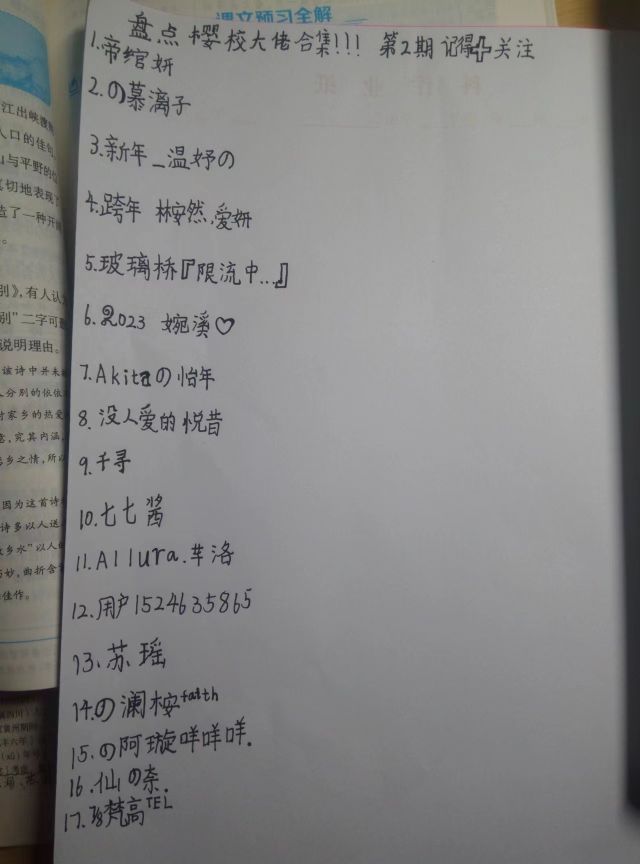 课文预习全解
盘点樱校大佬合集!!! 第2期 记得➕关注
1.帝绾妍
2.の慕漓子
3.新年_温妤の
4.跨年 林安然.爱妍
5.玻璃桥『限流中...』
6.2023 婉溪♡
7.Akitaの怡年
8.没人爱的悦昔
9.千寻
10.七七酱
11.Allura.芊洛
12.用户1524635865
13.苏瑶
14.の澜桉faith
15.の阿璇咩咩咩.
16.仙の奈.
梵高TEL
江出峡
人口的佳句
山与平野的
真切地表现了
造了一种开
别》,有人认
别"二字可
说明理由。
该诗中并未
人分别的依依
对家乡的热爱
意,究其内涵,
乡之情,所以
因为这首诗
诗多以人送
乡水"以人
巧妙,曲折含
佳作。